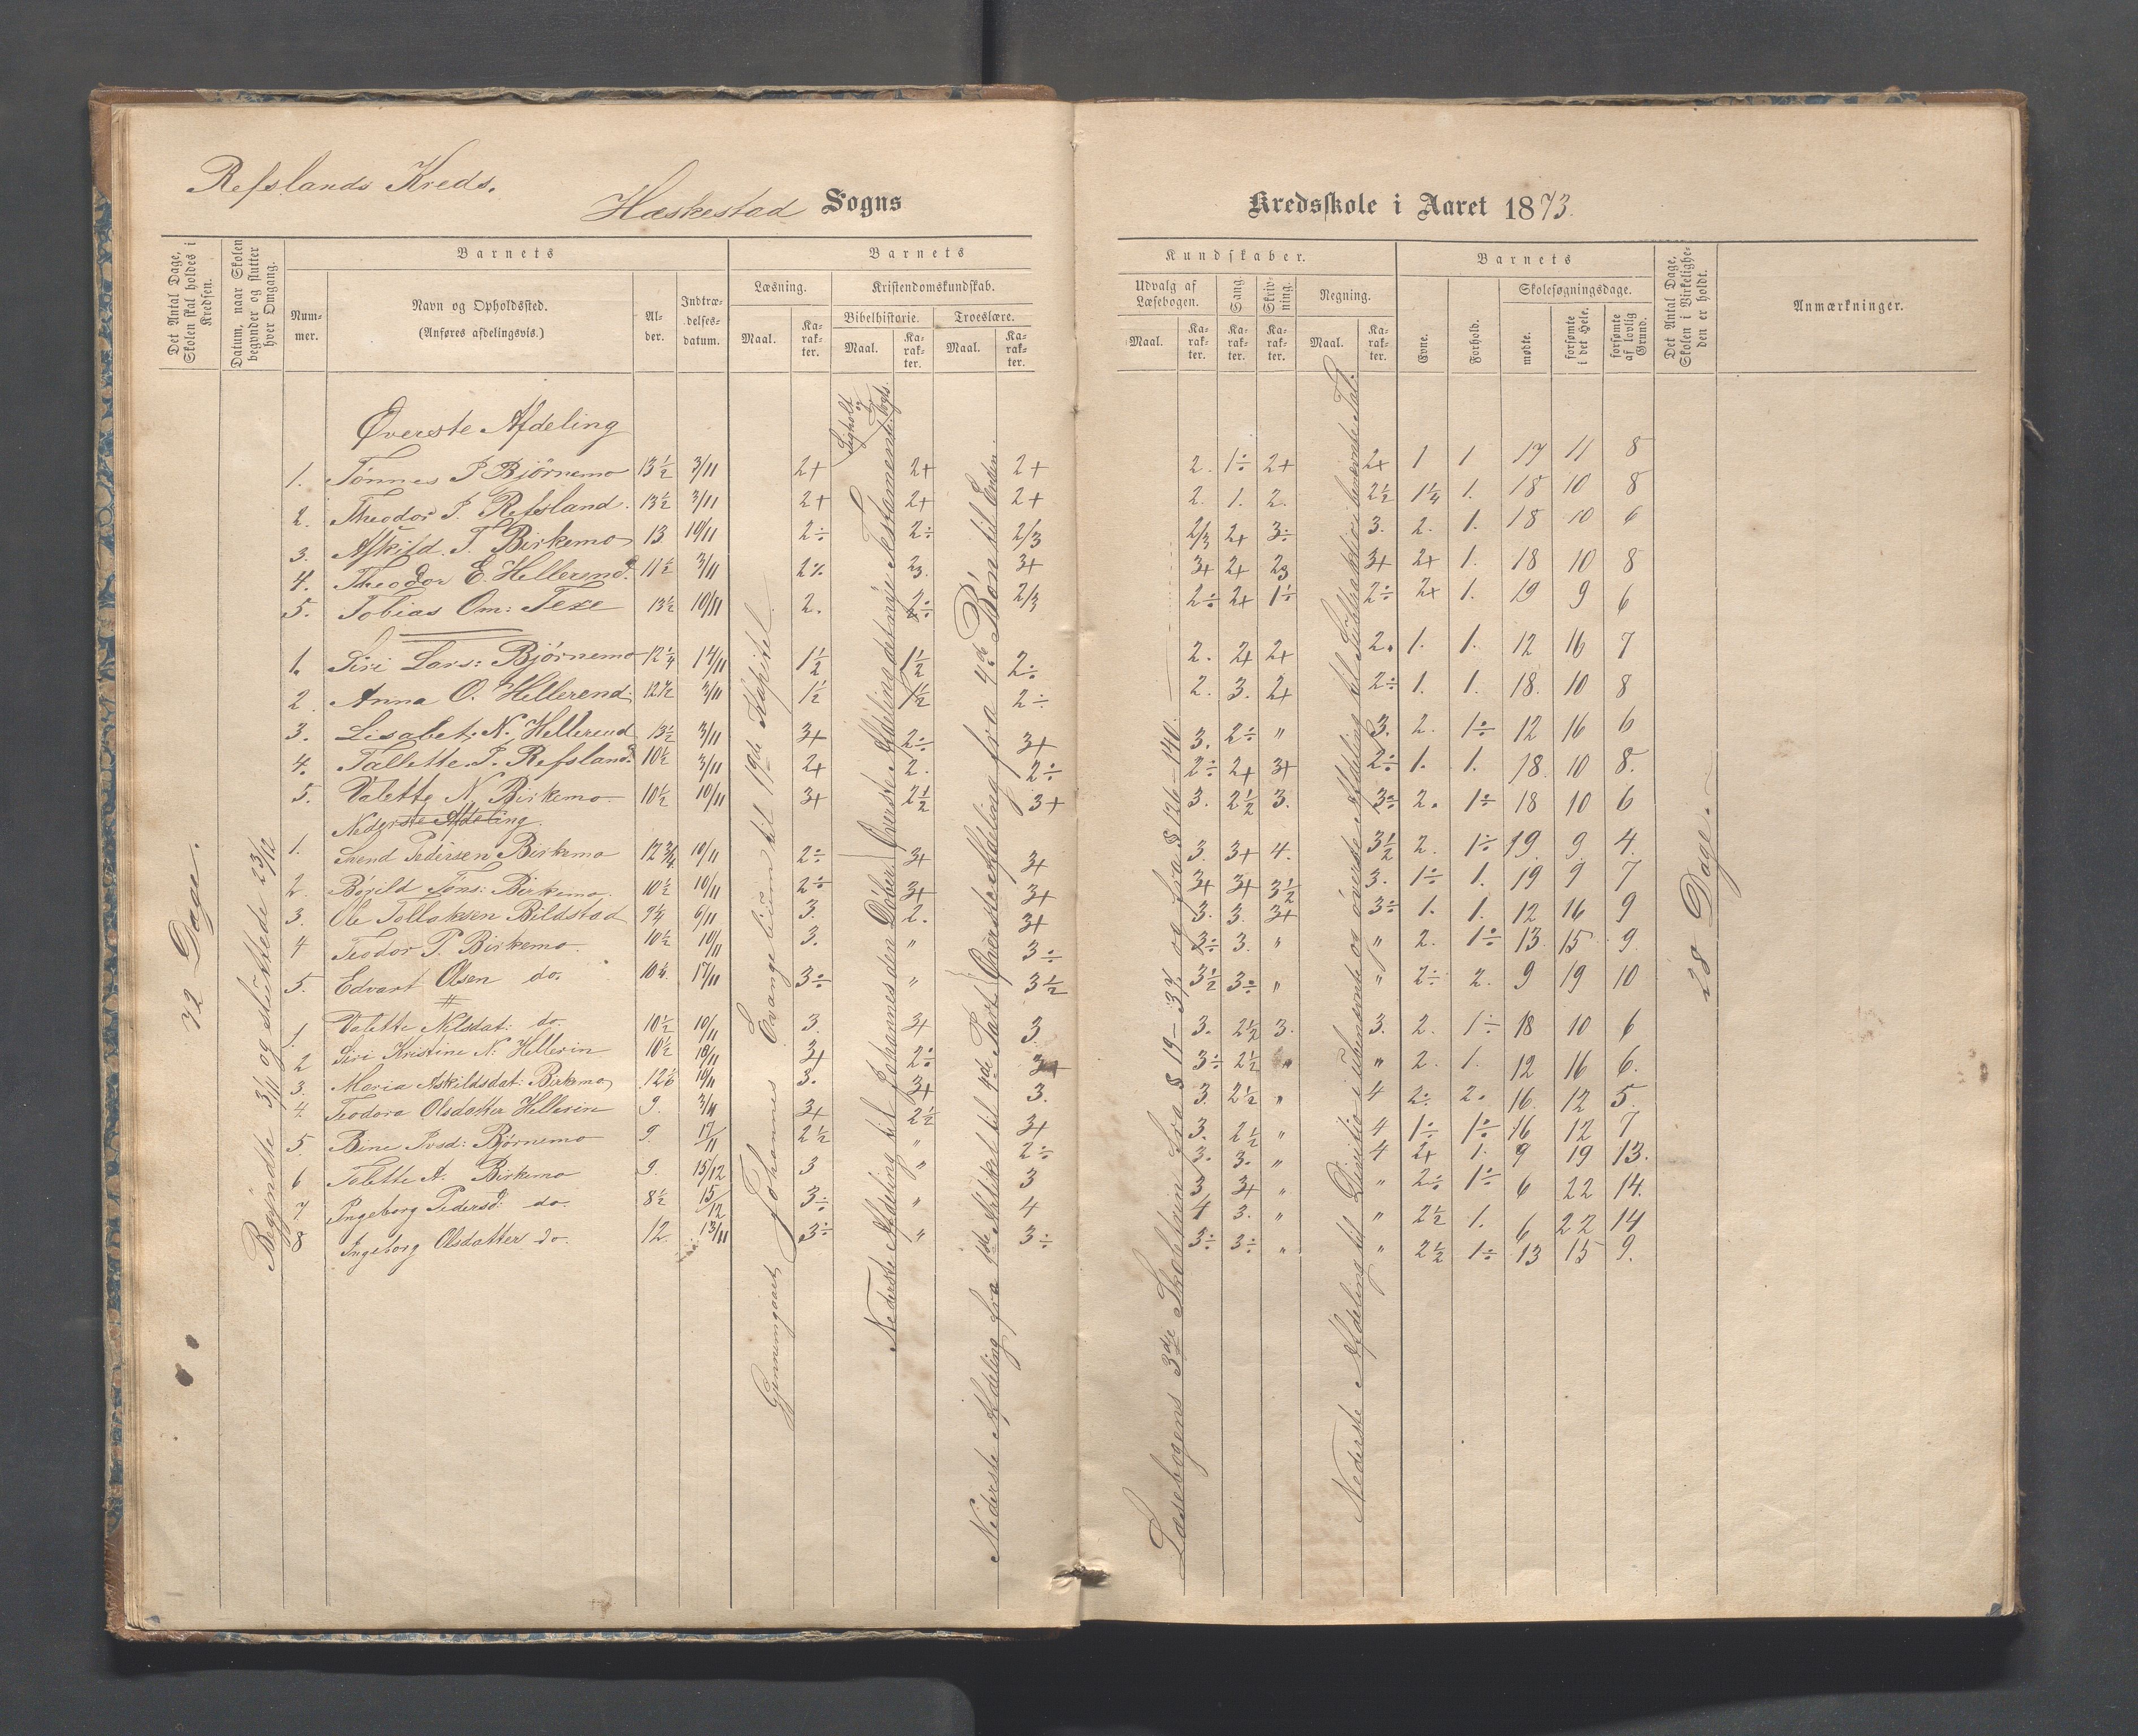 Refslands Kreds.
Hæskestad Sogns Kredsskole i Aaret 1873.
Det Antal Dage, Skolen skal holdes i Kredsen.
Datum, naar Skolen begynder og slutter hver Omgang.
Barnets
Nummer.
Navn og Opholdssted.
(Anføres afdelingsvis.)
Alder.
Indtrædelsesdatum.
Barnets
Læsning.
Maal.
Karakter.
Kristendomskundskab.
Bibelhistorie.
Maal.
Karakter.
Troeslære.
Maal.
Karakter.
Kundskaber.
Udvalg af Læsebogen.
Maal.
Karakter.
Sang.
Karakter.
Skrivning.
Karakter.
Regning.
Maal.
Karakter.
Barnets
Evne.
Forhold.
Skolesøgningsdage.
mødte.
forsømte i det Hele.
forsømte af lovlig Grund.
Det Antal Dage, Skolen i Virkeligheden er holdt.
Anmærkninger.
72 Dage.
Begyndte 3/11 og sluttede 23/12
Gjennemgaaet Johannes Evangelium til 19de Kapitel.
Nederste Afdeling til Johannes den Døber. Øverste Afdeling det nye Testamente
Nederste Afdeling fra 1ste Artikel til 4de Part Øverste Afdeling fra 4de Bøn til Enden.
Læsebogens 3die Skoletrin fra § 19-34 og fra § 126-140.
Nederste Afdeling til Divitio i ubenævnte og øverste Afdeling til Subtraktion i benævnte Tal.
28 Dage.
Øverste Afdeling
1. Tønnes P Bjørnemo 13½ 3/11 2+ 2+ 2+ 2. 1÷ 2+ 2+ 1 1 17 11 8
2. Theodor P. Refsland. 13½ 3/11 2+ 2+ 2+ 2. 1. 2. 2½ 1¼ 1. 18 10 8
3. Askild. T. Birkemo 13 10/11 2÷ 2÷ 2/3 2/3 2+ 3÷ 3. 2. 1. 18 10 6
4. Theodor E. Hellerend. 11½ 3/11 2÷ 23. 3+ 3+ 2+ 23 3+ 2+ 1. 18 10 8
5. Tobias Om: Texe 13½ 10/11 2. 2÷ 2/3 2÷ 2+ 1÷ 2÷ 2+ 1. 19 9 6
1. Siri Lars: Bjørnemo 12¼ 14/11 1½ 1½ 2÷ 2. 2+ 2+ 2. 1. 1. 12 16 7
2. Anna O. Hellerend: 12½ 3/11 1½ 1½ 2÷ 2. 3. 2+ 2÷ 1. 1. 18. 10 8
3. Lisabet. N. Hellerend 13½ 3/11 3+ 2÷ 3+ 3. 2÷ " 3. 2. 1÷ 12 16 6
4. Tallette P. Refsland. 10½ 3/11 2+ 2. 2÷ 2÷ 2+ 3+ 2÷ 1. 1. 18. 10 8.
5. Valette N. Birkemo. 10½ 10/11 3+ 2½ 3+ 3. 2½ 3. 3÷ 2. 1÷ 18 10 6
Nederste Afdeling.
1. Svend Pedersen Birkemo 12¾ 10/11 2÷ 3+ 3+ 3. 3+ 4. 3½ 2. 1÷ 19. 9. 4.
2. Børild Tøns: Birkemo. 10½ 10/11 2÷ 3+ 3+ 3+ 3+ 3½ 3. 1÷ 1. 19 9 7
3. Ole Tollaksen Bildstad 9¼ 6/11 3. 2. 3+ 3. 3. 3+ 3÷ 1. 1. 12 16 9
4 Teodor P. Birkemo. 10½ 10/11 3. " 3÷ 3÷ 3. " " 2. 1÷ 13. 15 9.
5. Edvart Olsen do. 10¼. 17/11 3÷ " 3½ 3½ 3÷ " " 2÷ 2. 9 19 10
1. Valette Nilsdat: do. 10½ 10/11 3. 3+ 3. 3. 2½ 3. 3. 2. 1÷ 18 10 6
2 Siri Kristine N. Hellerin 10½ 10/11 3+ 2÷ 3+ 3÷ 2½ " " 2. 1. 12 16 6.
3. Maria Askildsdat: Birkemo 12½ 10/11 3. 3+ 3. 3. 2½ " 4 2÷ 2. 16. 12 5.
4. Teodora Olsdatter Hellerin 9. 3/11 3+ 2½ 3+ 3. 2½ " 4 1÷ 1÷ 16 12 7
5. Bine Ivsd: Bjørnemo 9. 17/11 2½ " 2÷ 3. 3. " 4 2+ 1. 9 19 13.
6 Talette A. Birkemo 9. 15/12 3 " 3 3 3+ " " 2÷ 1÷ 6 22 14.
7 Ingeborg Pedersd. do. 8½ 15/12 3÷ " 4 4 3. " " 2½ 1. 6 22 14
8 Ingeborg Olsdatter do. 12. 13/11 3÷ " 3÷ 3÷ 3÷ " " 2½ 1÷ 13 15 9.